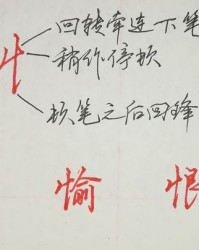 忄
回转牵连下笔
稍作停顿
顿笔之后回锋
愉 恨